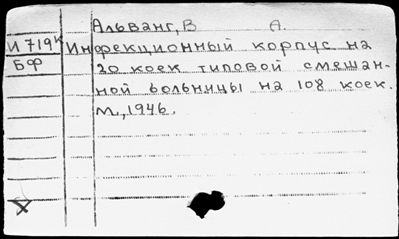 Альванг, В А.
И 719к Инфекционный корпус на
БФ 30 коек типовой смешан-
ной больницы на 108 коек.
М., 1946.